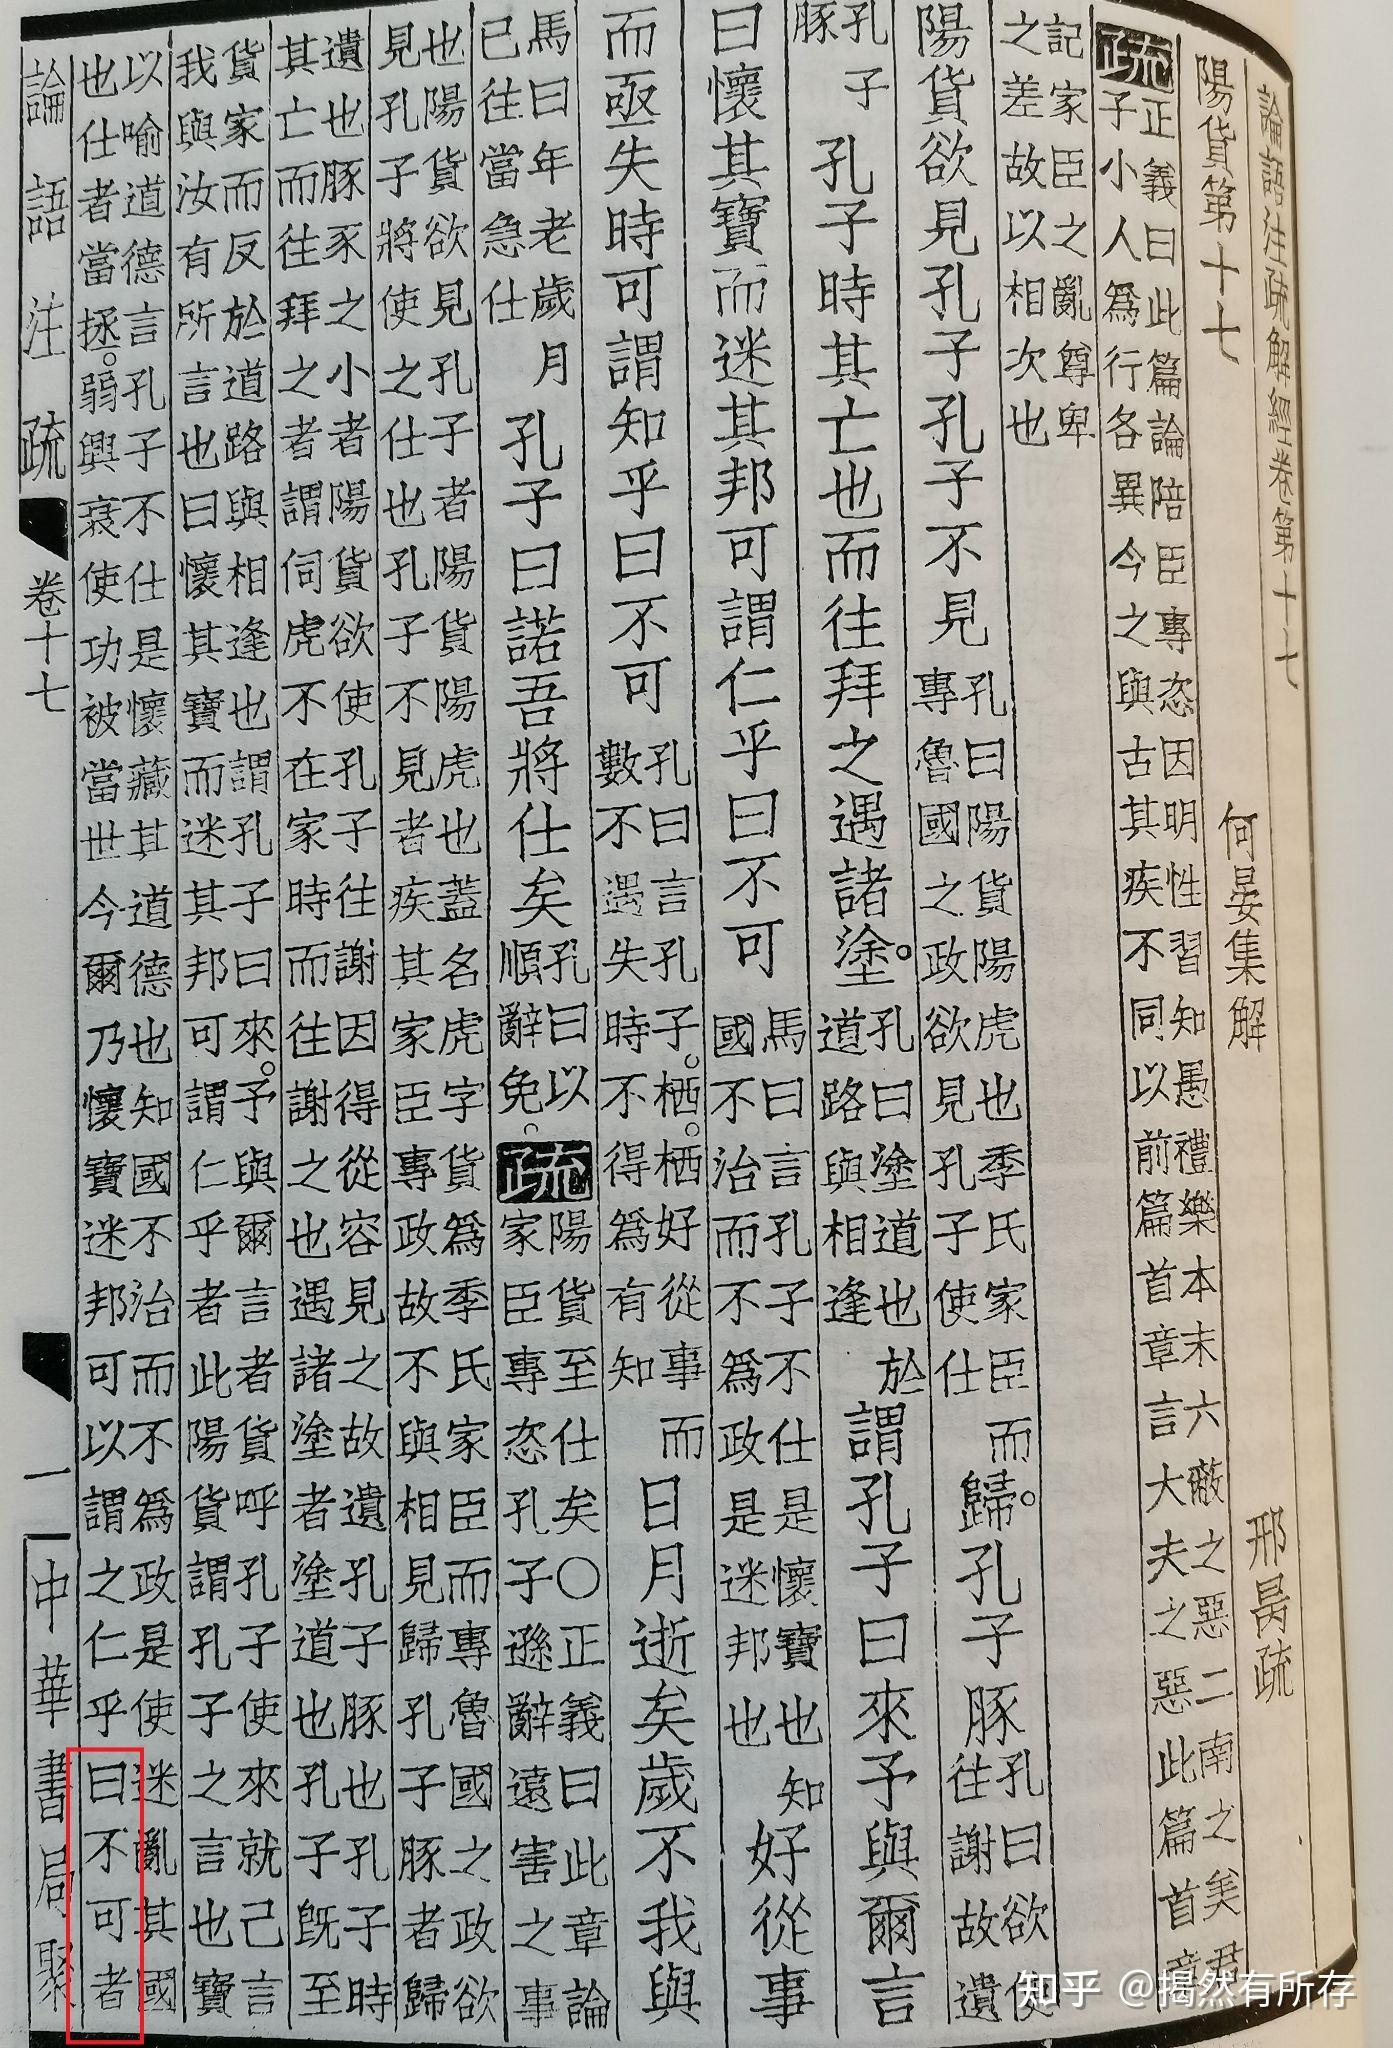 論語注疏解經卷第十七
陽貨第十七 何晏集解 邢昺疏
疏正義曰此篇論陪臣專恣因明性習知愚禮樂本末六蔽之惡二南之美君
子小人爲行各異今之與古其疾不同以前篇首章言大夫之惡此篇首章
記家臣之亂尊卑
之差故以相次也
陽貨欲見孔子孔子不見
孔曰陽貨陽虎也季氏家臣而
專魯國之政欲見孔子使仕
歸。孔子豚
孔曰欲使
往謝故遺
孔子
豚
孔子時其亡也而往拜之遇諸塗。
孔曰塗道也於
道路與相逢
謂孔子曰來予與爾言
曰懷其寶而迷其邦可謂仁乎曰不可
馬曰言孔子不仕是懷寶也知
國不治而不爲政是迷邦也
好從事
而亟失時可謂知乎曰不可
孔曰言孔子。栖。栖好從事而
數不遇失時不得爲有知
日月逝矣歲不我與
馬曰年老歲月
已往當急仕
孔子曰諾吾將仕矣
孔曰以
順辭免。
疏
陽貨至仕矣○正義曰此章論
家臣專恣孔子遜辭遠害之事
也陽貨欲見孔子者陽貨陽虎也蓋名虎字貨爲季氏家臣而專魯國之政欲
見孔子將使之仕也孔子不見者疾其家臣專政故不與相見歸孔子豚者歸
遺也豚豕之小者陽貨欲使孔子往謝因得從容見之故遺孔子豚也孔子時
其亡而往拜之者謂伺虎不在家時而往謝之也遇諸塗者塗道也孔子既至
貨家而反於道路與相逢也謂孔子曰來。予與爾言者貨呼孔子使來就己言
我與汝有所言也曰懷其寶而迷其邦可謂仁乎者此陽貨謂孔子之言也寶
以喻道德言孔子不仕是懷藏其道德也知國不治而不爲政是使迷亂其國
也仕者當拯。弱興衰使功被當世今爾乃懷寶迷邦可以謂之仁乎曰不可者
論語注疏 卷十七 一 中華書局聚
知乎 @揭然有所存